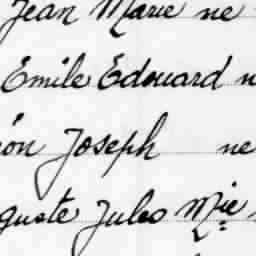 Jean Marie ne
Emile Edouard n
ión Joseph ne
guste Jules Mie